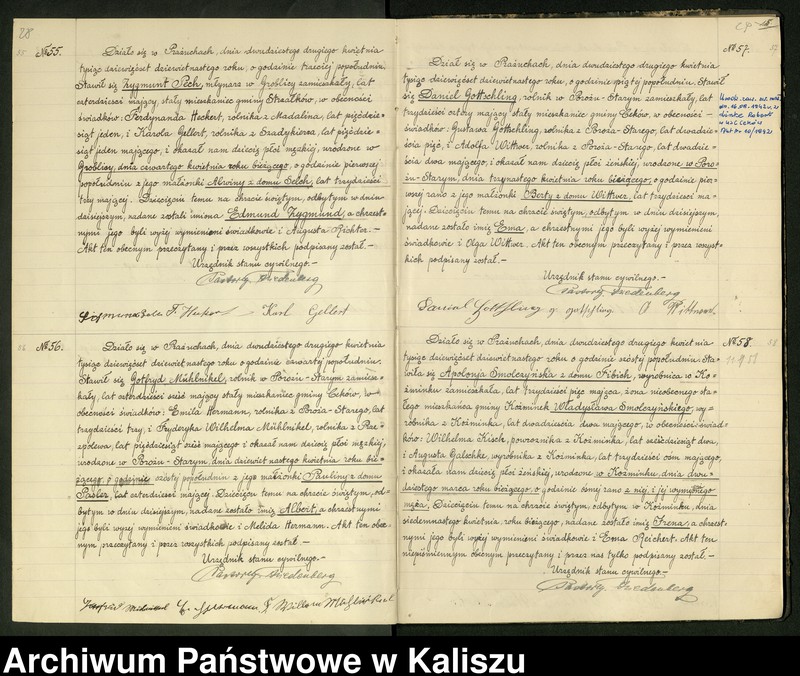 28
55 № 55.
Działo się w Prażuchach, dnia dwudziestego drugiego kwietnia
tysiąc dziewięćset dziewiętnastego roku, o godzinie trzeciej popołudniu.
Stawił się Zygmunt Pech, młynarz w Groblicy zamieszkały, lat
czterdzieści mający, stały mieszkaniec gminy Strzałków, w obecności
świadków: Ferdynanda Heckert, rolnika z Madalina, lat pięćdzie-
siąt jeden, i Karola Gellert, rolnika z Szadykierza, lat pięćdzie-
siąt jeden mającego, i okazał nam dziecię płci męzkiej, urodzone w
Groblicy, dnia czwartego kwietnia roku bieżącego, o godzinie pierwszej
popołudniu z jego małżonki Alwiny z domu Selch, lat trzydzieści
trzy mającej. Dziecięciu temu na chrzcie świętym, odbytym w dniu
dzisiejszym, nadane zostały imiona Edmund Zygmund, a chrzest-
nymi jego byli wyżej wymienieni świadkowie i Augusta Richter.-
Akt ten obecnym przeczytany i przez wszystkich podpisany został.-
Urzędnik stanu cywilnego.-
Karl Gellert
56 № 56.
Działo się w Prażuchach, dnia dwudziestego drugiego kwietnia
tysiąc dziewięćset dziewiętnastego roku o godzinie czwartej popołudniu.
Stawił się Gotfryd Mühlnikel, rolnik w Porożu-Starym zamiesz-
kały, lat czterdzieści sześć mający stały mieszkaniec gminy Ceków, w
obecności świadków: Emila Hermann, rolnika z Poroża-Starego, lat
trzydzieści trzy, i Fryderyka Wilhelma Mühlnikel, rolnika z Prze-
spolewa, lat pięćdziesiąt sześć mającego i okazał nam dziecię płci męzkiej,
urodzone w Porożu-Starym, dnia dziewiętnastego kwietnia roku bie-
żącego, o godzinie szóstej popołudniu z jego małżonki Pauliny z domu
lat czterdzieści mającej. Dziecięciu temu na chrzcie świętym, od-
bytym w dniu dzisiejszym, nadane zostało imię Albert, a chrzestnymi
jego byli wyżej wymienieni świadkowie i Melida Hermann. Akt ten obec-
nym przeczytany i przez wszystkich podpisany został.-
Urzędnik stanu cywilnego.-
№ 57. 57
Działo się w Prażuchach, dnia dwudziestego drugiego kwietnia
tysiąc dziewięćset dziewiętnastego roku, o godzinie piątej popołudniu. Stawił
się Daniel Gottschling, rolnik w Porożu-Starym zamieszkały, lat
trzydzieści cztery mający, stały mieszkaniec gminy Ceków, w obecności -
świadków: Gustawa Gottschling, rolnika z Poroża-Starego, lat dwadzie-
ścia pięć, i Adolfa Wittwer, rolnika z Poroża-Starego, lat dwadzie-
ścia dwa mającego, i okazał nam dziecię płci żeńskiej, urodzone w Poro-
żu-Starym, dnia trzynastego kwietnia roku bieżącego, o godzinie pier-
wszej rano z jego małżonki Berty z domu Wittwer, lat trzydzieści ma-
jącej. Dziecięciu temu na chrzcie świętym, odbytym w dniu dzisiejszym,
nadane zostało imię Ema, a chrzestnymi jego byli wyżej wymienieni
świadkowie i Olga Wittwer. Akt ten obecnym przeczytany i przez wszyst-
kich podpisany został.-
Urzędnik stanu cywilnego.-
№ 58. 58
Działo się w Prażuchach, dnia dwudziestego drugiego kwietnia
tysiąc dziewięćset dziewiętnastego roku o godzinie szóstej popołudniu. Sta-
wiła się Apolonja Smolczyńska z domu Fibich, wyrobnica w Ko-
źminku zamieszkała, lat trzydzieści pięć mająca, żona nieobecnego sta-
łego mieszkańca gminy Koźminek Władysława Smolczyńskiego, wy-
robnika z Koźminka, lat dwadzieścia dwa mającego, w obecności świad-
ków: Wilhelma Kisch, powroźnika z Koźminka, lat sześćdziesiąt dwa,
i Augusta Galschke, wyrobnika z Koźminka, lat trzydzieści osm mającego,
i okazała nam dziecię płci żeńskiej, urodzone w Koźminku, dnia dwu-
dziestego marca roku bieżącego, o godzinie ósmej rano z niej, i jej wymienionego
męża. Dziecięciu temu na chrzcie świętym, odbytym w Koźminku, dnia
siedemnastego kwietnia roku bieżącego, nadane zostało imię Irena, a chrzest-
nymi jego byli wyżej wymienieni świadkowie i Ema Reichert. Akt ten
niepiśmiennym obecnym przeczytany i przez nas tylko podpisany został.-
Urzędnik stanu cywilnego.-
Archiwum Państwowe w Kaliszu